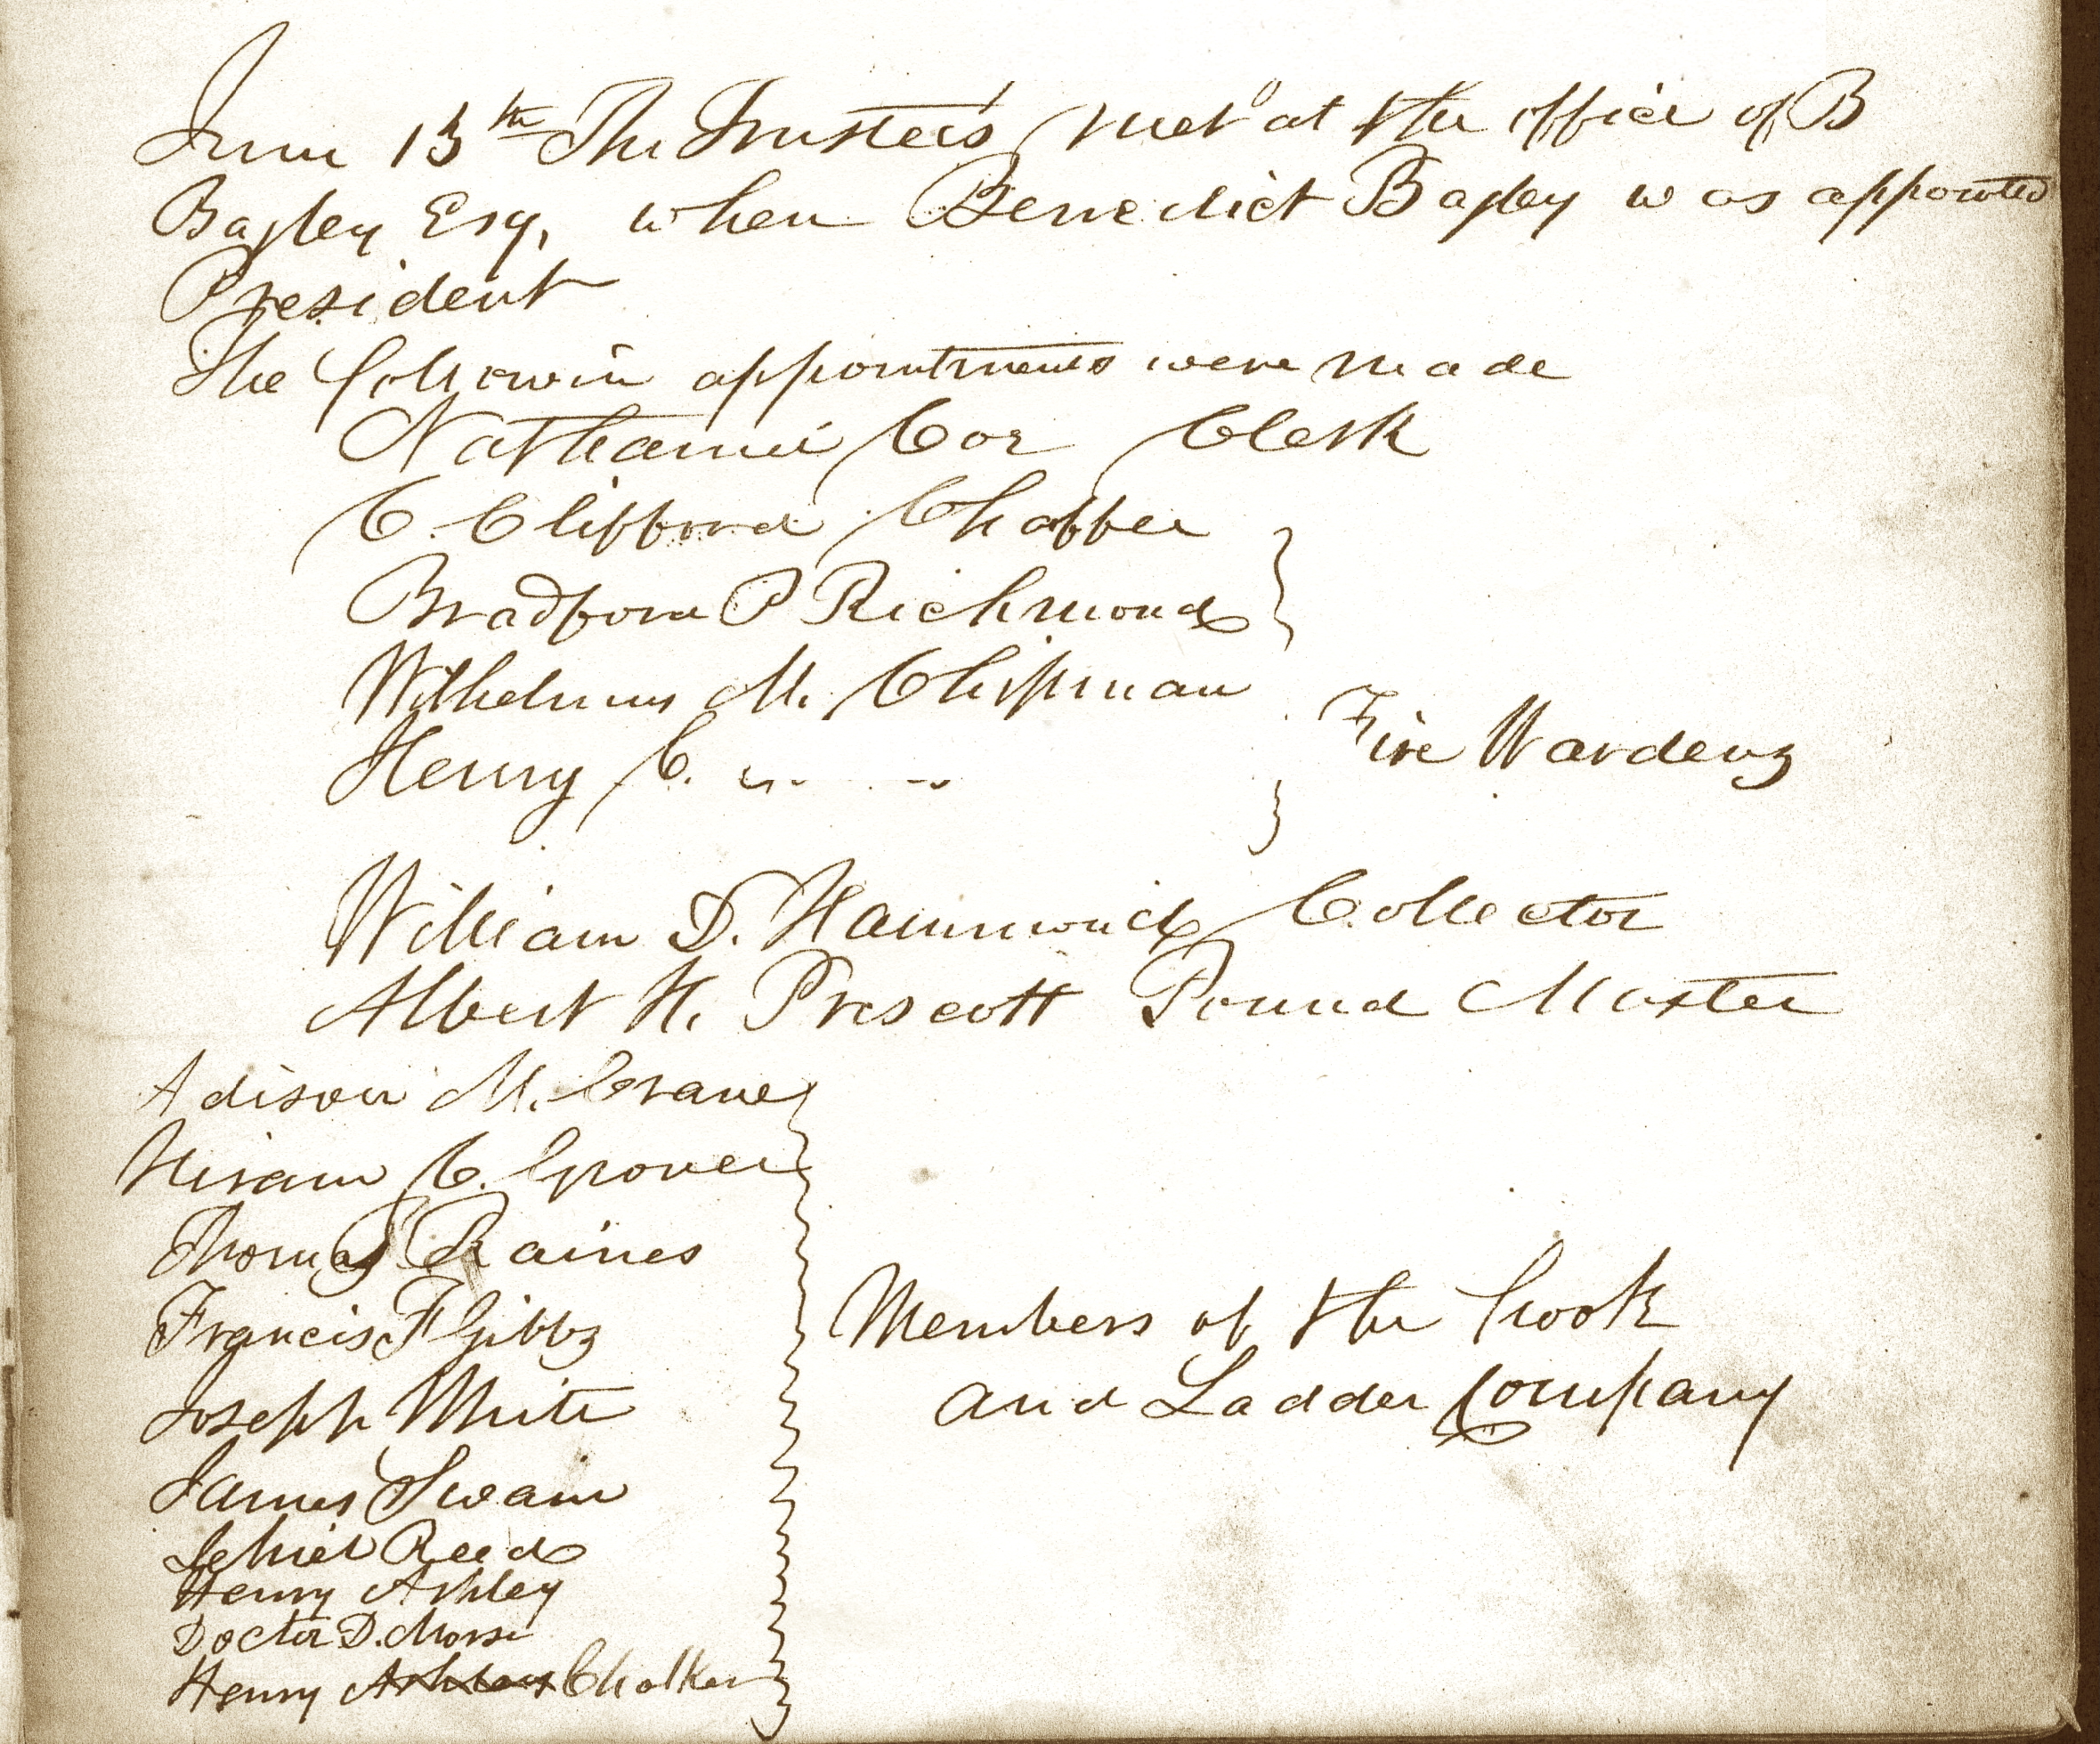 June 13th The Trustees met at the office of B
Bagley Esq, when Benedict Bagley was appointed
President
The followin appointments were made
Nathaniel Cor Clerk
C. Clifford Chaffee
Bradford P Richmond
Wilhelmus M. Chipman
Henry C.
Fire Wardens
William D. Hammond Collector
Albert H. Prescott Pound Master
Adison M. Crane
Hiram C. Grover
Thomas Raines
Francis F Gibbs
Joseph White
James Swain
Jehiel Reed
Henry Ashley
Doctor D. Morse
Henry Ashley Chalker
Members of the hook
and Ladder Company